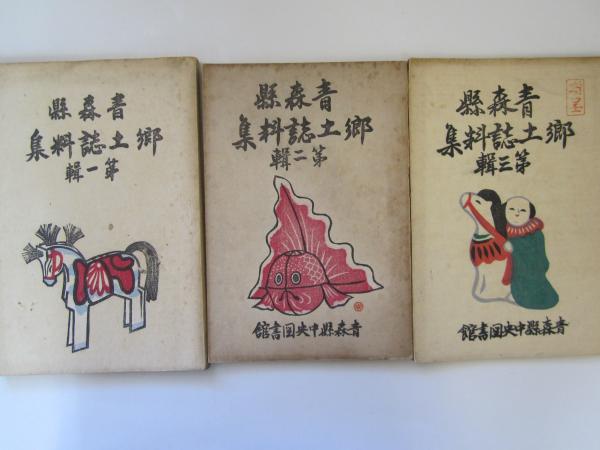 縣森青
集料誌土郷
輯一第
縣森青
集料誌土郷
輯二第
館書図央中縣森青
縣森青
集料誌土郷
輯三第
館書図央中縣森青